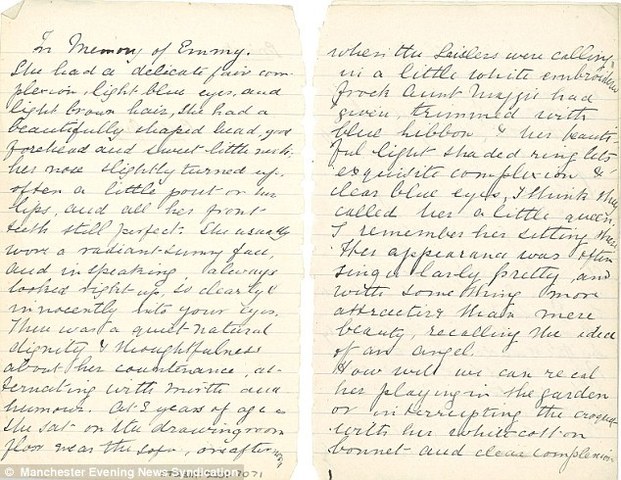 In Memory of Emmy.
She had a delicate fair com-
plexion, light blue eyes, and
light brown hair, she had a
beautifully shaped head, good
forehead and sweet little neck.
her nose slightly turned up.
often a little pout on her
lips, and all her front
teeth still perfect. She usually
wore a radiant sunny face,
and in speaking, always
looked right up, so clearly &
innocently into your eyes.
There was a quiet natural
dignity & thoughtfulness
about her countenance, al-
ternating with mirth and
humour. At 2 years of age as
she sat on the drawing room
floor near the sofa, one afternoon
when the were calling,
in a little white embroidered
frock Aunt Maggie had
given, trimmed with
blue ribbon, & her beauti-
ful light shaded ringlets
exquisite complexion &
clear blue eyes, I think they
called her a little queen.
I remember her sitting there.
Her appearance was often
singularly pretty, and
with something more
attractive than mere
beauty, recalling the idea
of an angel.
How well we can recal
her playing in the garden
or interrupting the croquet
with her white cotton
bonnet and clear complexion
© Manchester Evening News Syndication
7071